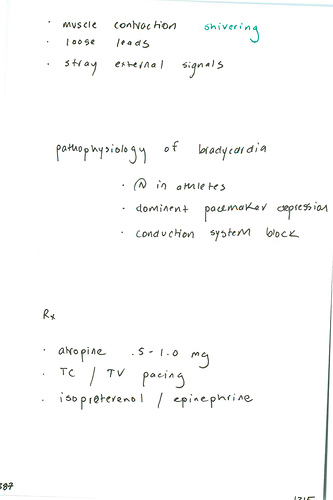 · muscle contraction shivering
· loose leads
· stray external signals
pathophysiology of bradycardia
· Ⓝ in athletes
· dominent pacemaker depression
· conduction system block
Rx
· atropine .5 - 1.0 mg
· TC / TV pacing
· isoproterenol / epinephrine
387